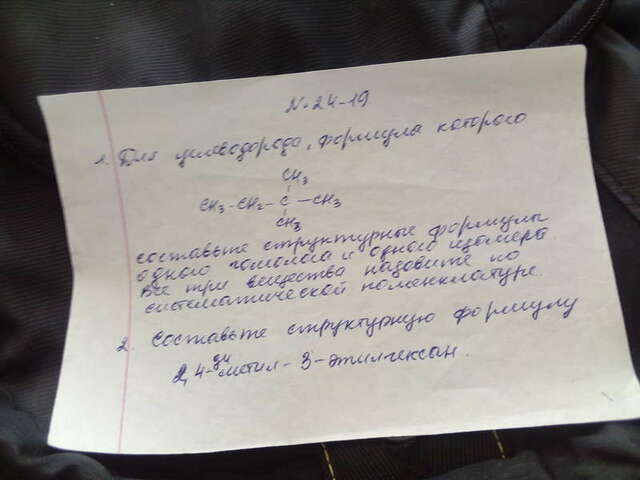 N 24-19
1. Для углеводорода, формула которого
CH3
CH3-CH2-C-CH3
CH3
составьте структурные формулы
одного гомолога и одного изомера.
Все три вещества назовите по
систематической номенклатуре.
2. Составьте структурную формулу
ди
2,4-метил-3-этилгексан.